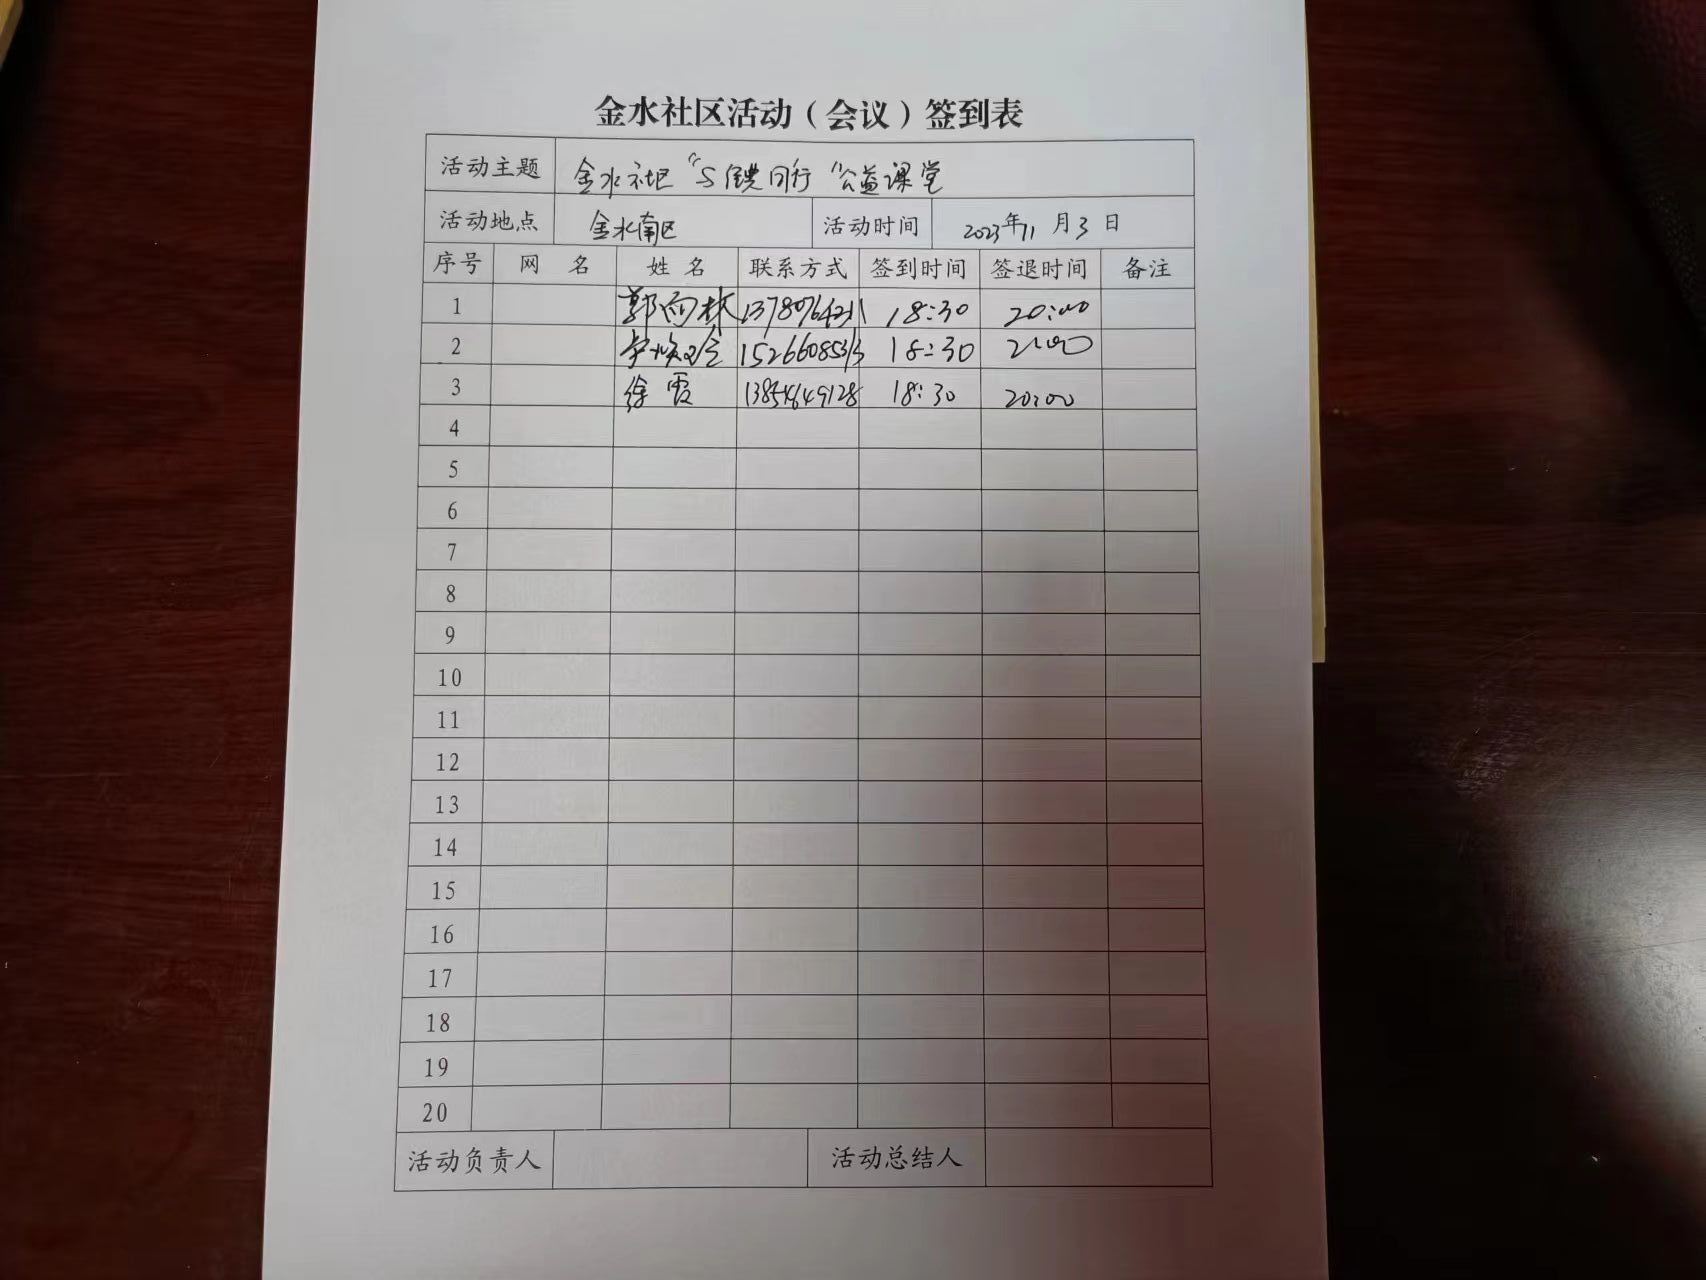 金水社区活动（会议）签到表
活动主题 金水社区“与健同行”公益课堂
活动地点 金水南区 活动时间 2023年11月3日
序号 网 名 姓 名 联系方式 签到时间 签退时间 备注
1 郭雨林 18:30 20:00
2 18:30
3 徐霞 18:30 20:00
4
5
6
7
8
9
10
11
12
13
14
15
16
17
18
19
20
活动负责人 活动总结人